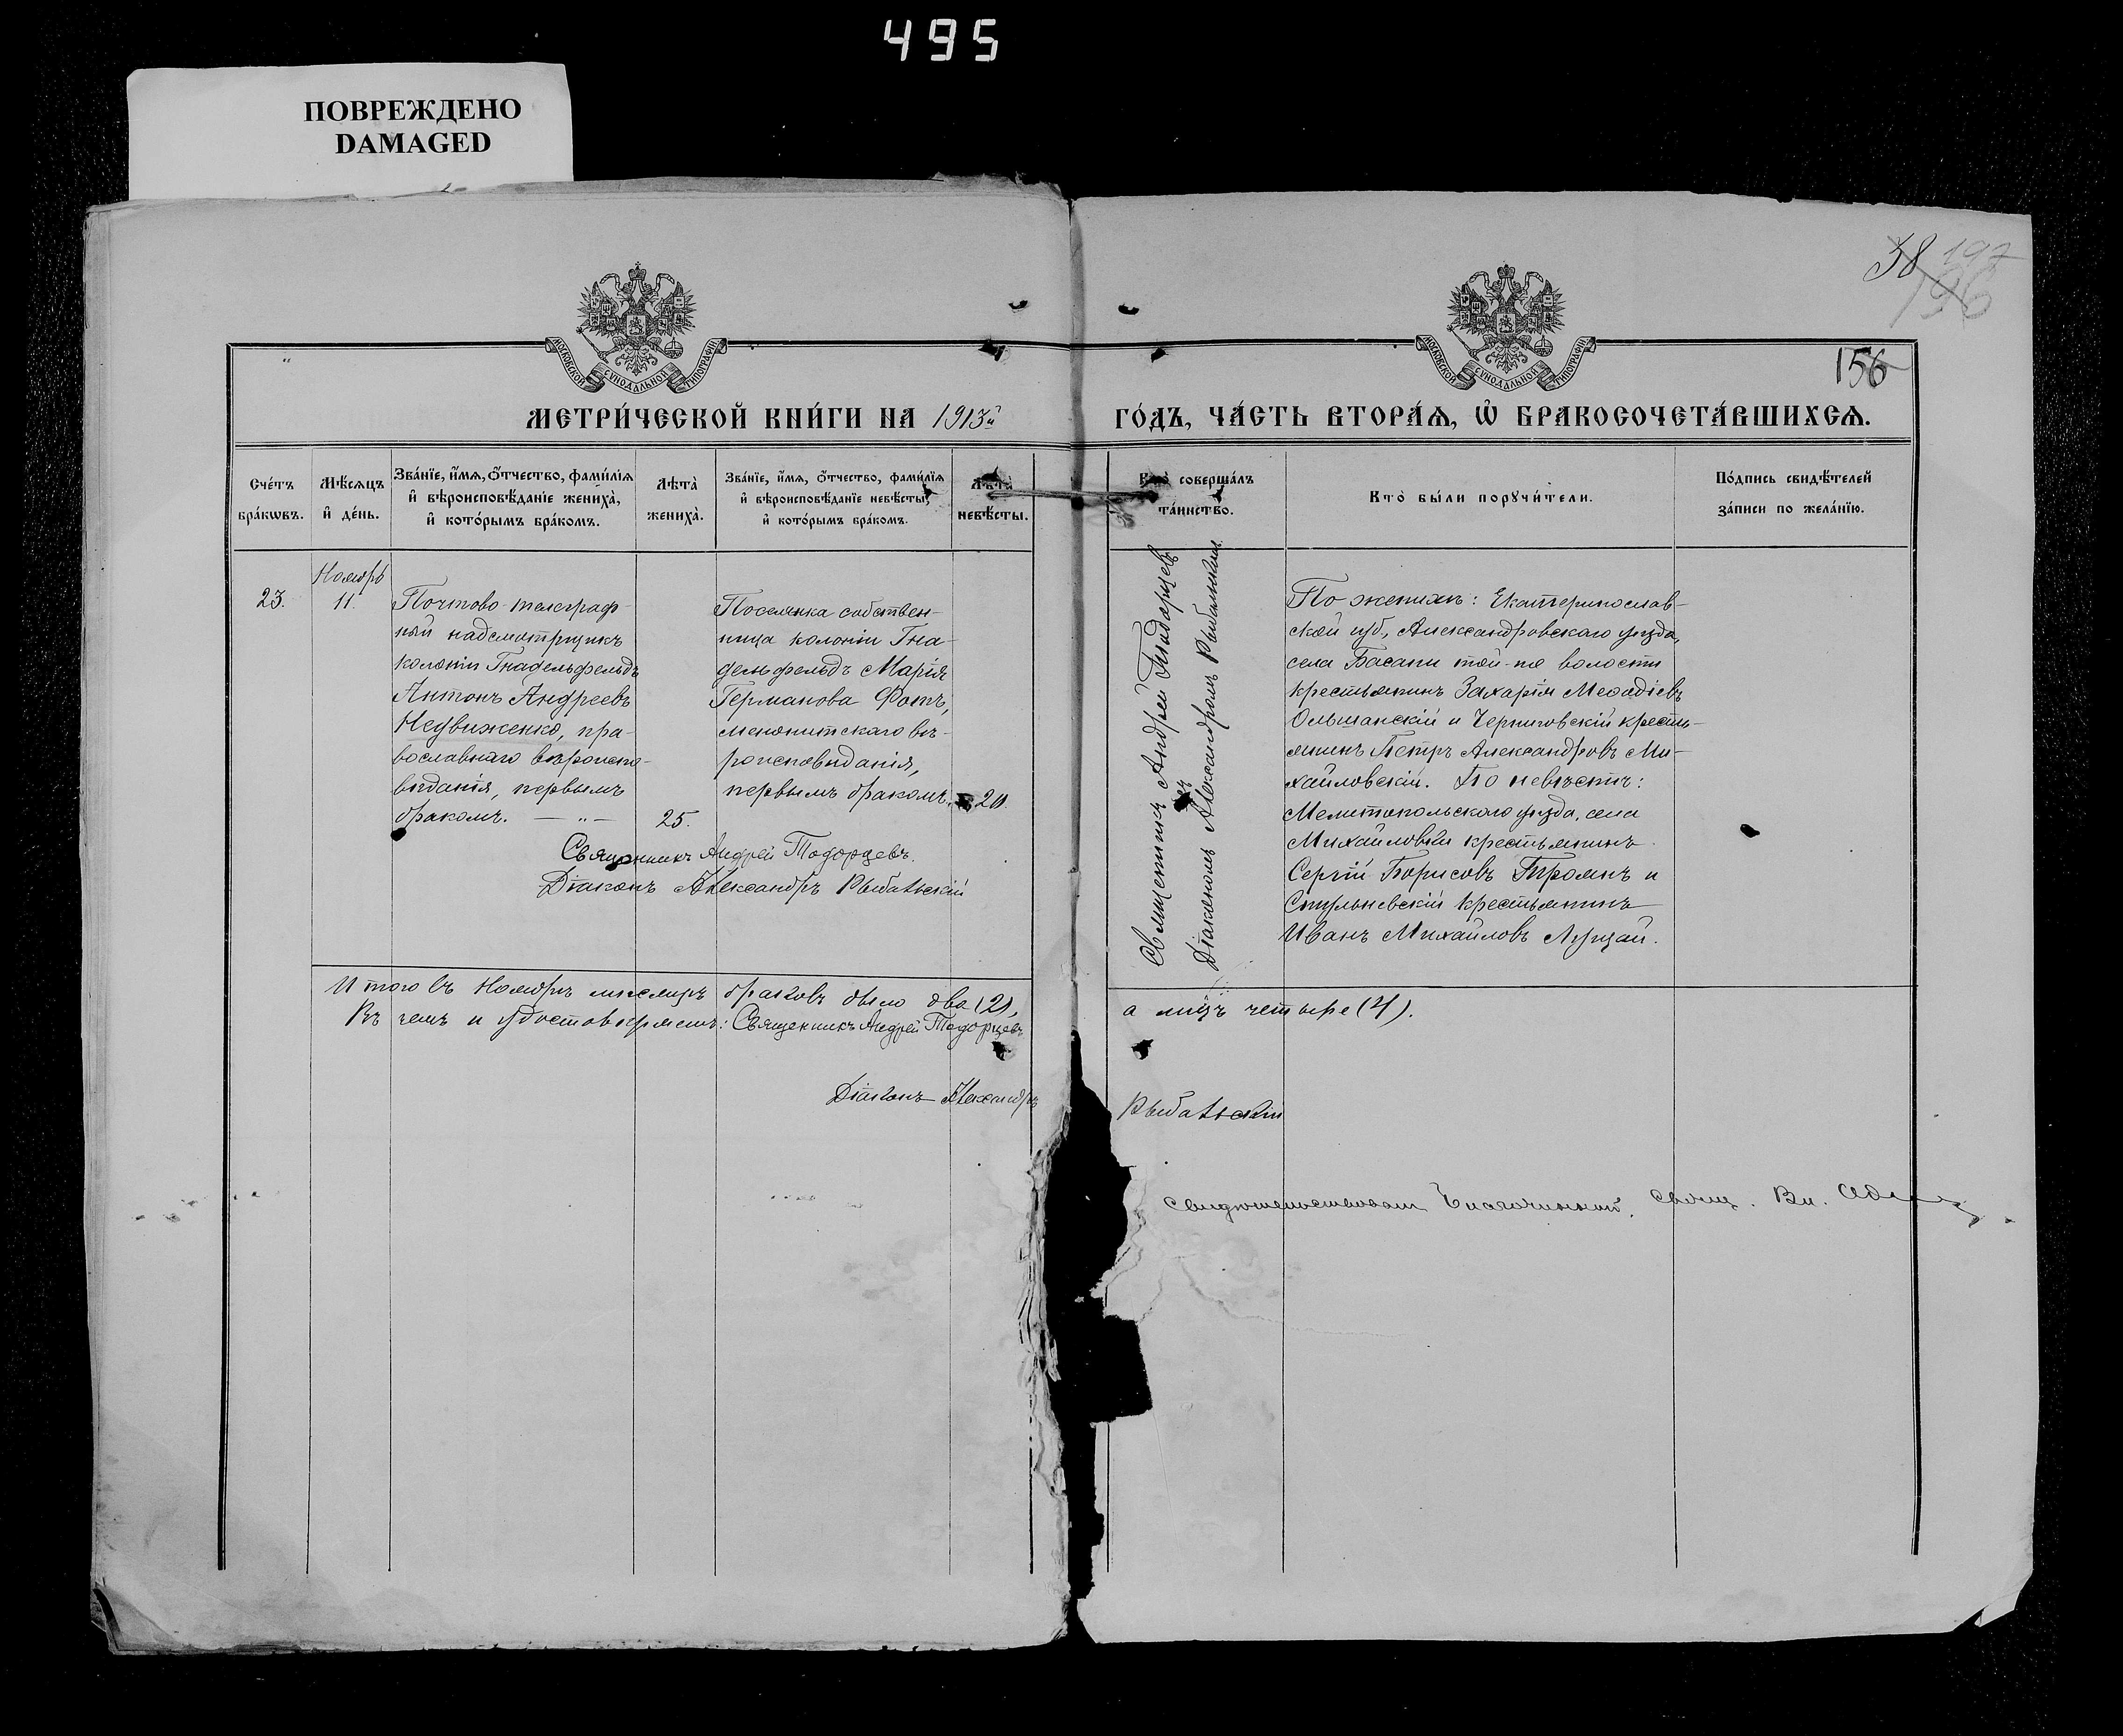 495
ПОВРЕЖДЕНО
DAMAGED
38 197
196
156
МОСКОВСКОЙ СѴНОДАЛЬНОЙ ТИПОГРАФІИ
МОСКОВСКОЙ СѴНОДАЛЬНОЙ ТИПОГРАФІИ
МЕТРИ́ЧЕСКОЙ КНИ́ГИ НА 1913й
ГО́ДЪ, ЧА́СТЬ ВТОРА́Ѧ, Ѿ БРАКОСОЧЕТА́ВШИХСѦ.
Сче́тъ бра́кωвъ.
Мѣ́сѧцъ и҆ де́нь.
Зва́нїе, и҆́мѧ, ѻ҆́тчество, фами́лїѧ
и҆ вѣроисповѣ́данїе жениха̀,
и҆ кото́рымъ бра́комъ.
Лѣта̀ жениха̀.
Зва́нїе, и҆́мѧ, ѻ҆́тчество, фами́лїѧ
и҆ вѣроисповѣ́данїе невѣ́сты,
и҆ кото́рымъ бра́комъ.
Лѣта̀ невѣ́сты.
Кто̀ соверша́лъ
та́инство.
Кто̀ бы́ли порꙋчи́тели.
По́дпись свидѣ́телей
за́писи по жела́нїю.
23.
Ноябрь
11.
Почтово-телеграф-
ный надсмотрщикъ
колоніи Гнадельфельдъ
Антонъ Андреевъ
Недвиженко, пра-
вославнаго вѣроиспо-
вѣданія, первымъ
бракомъ. — „ —
25.
Поселянка собствен-
ница колоніи Гна-
дельфельдъ Марія
Германова Фотъ,
менонитскаго вѣ-
роисповѣданія,
первымъ бракомъ.
20.
Священникъ Андрей Тодорцевъ.
Діаконъ Александръ Рыбальскій
Священникъ Андрей Тодорцевъ
съ
Діакономъ Александромъ Рыбальскимъ.
По женихѣ: Екатеринослав-
ской губ., Александровскаго уѣзда,
села Басани той-же волости
крестьянинъ Захарій Меѳодіевъ
Ольшанскій и Черниговскій кресть-
янинъ Петръ Александровъ Ми-
хайловскій. По невѣстѣ:
Мелитопольскаго уѣзда, села
Михайловки крестьянинъ
Сергій Борисовъ Троянъ и
крестьянинъ
Иванъ Михайловъ Луцай.
Итого въ Ноябрѣ мѣсяцѣ браковъ было два (2),
а лицъ четыре (4).
Въ чемъ и удостовѣряемъ: Священникъ Андрей Тодорцевъ
Діаконъ Александръ
Рыбальскій
Благочинный, Свящ. Вл.